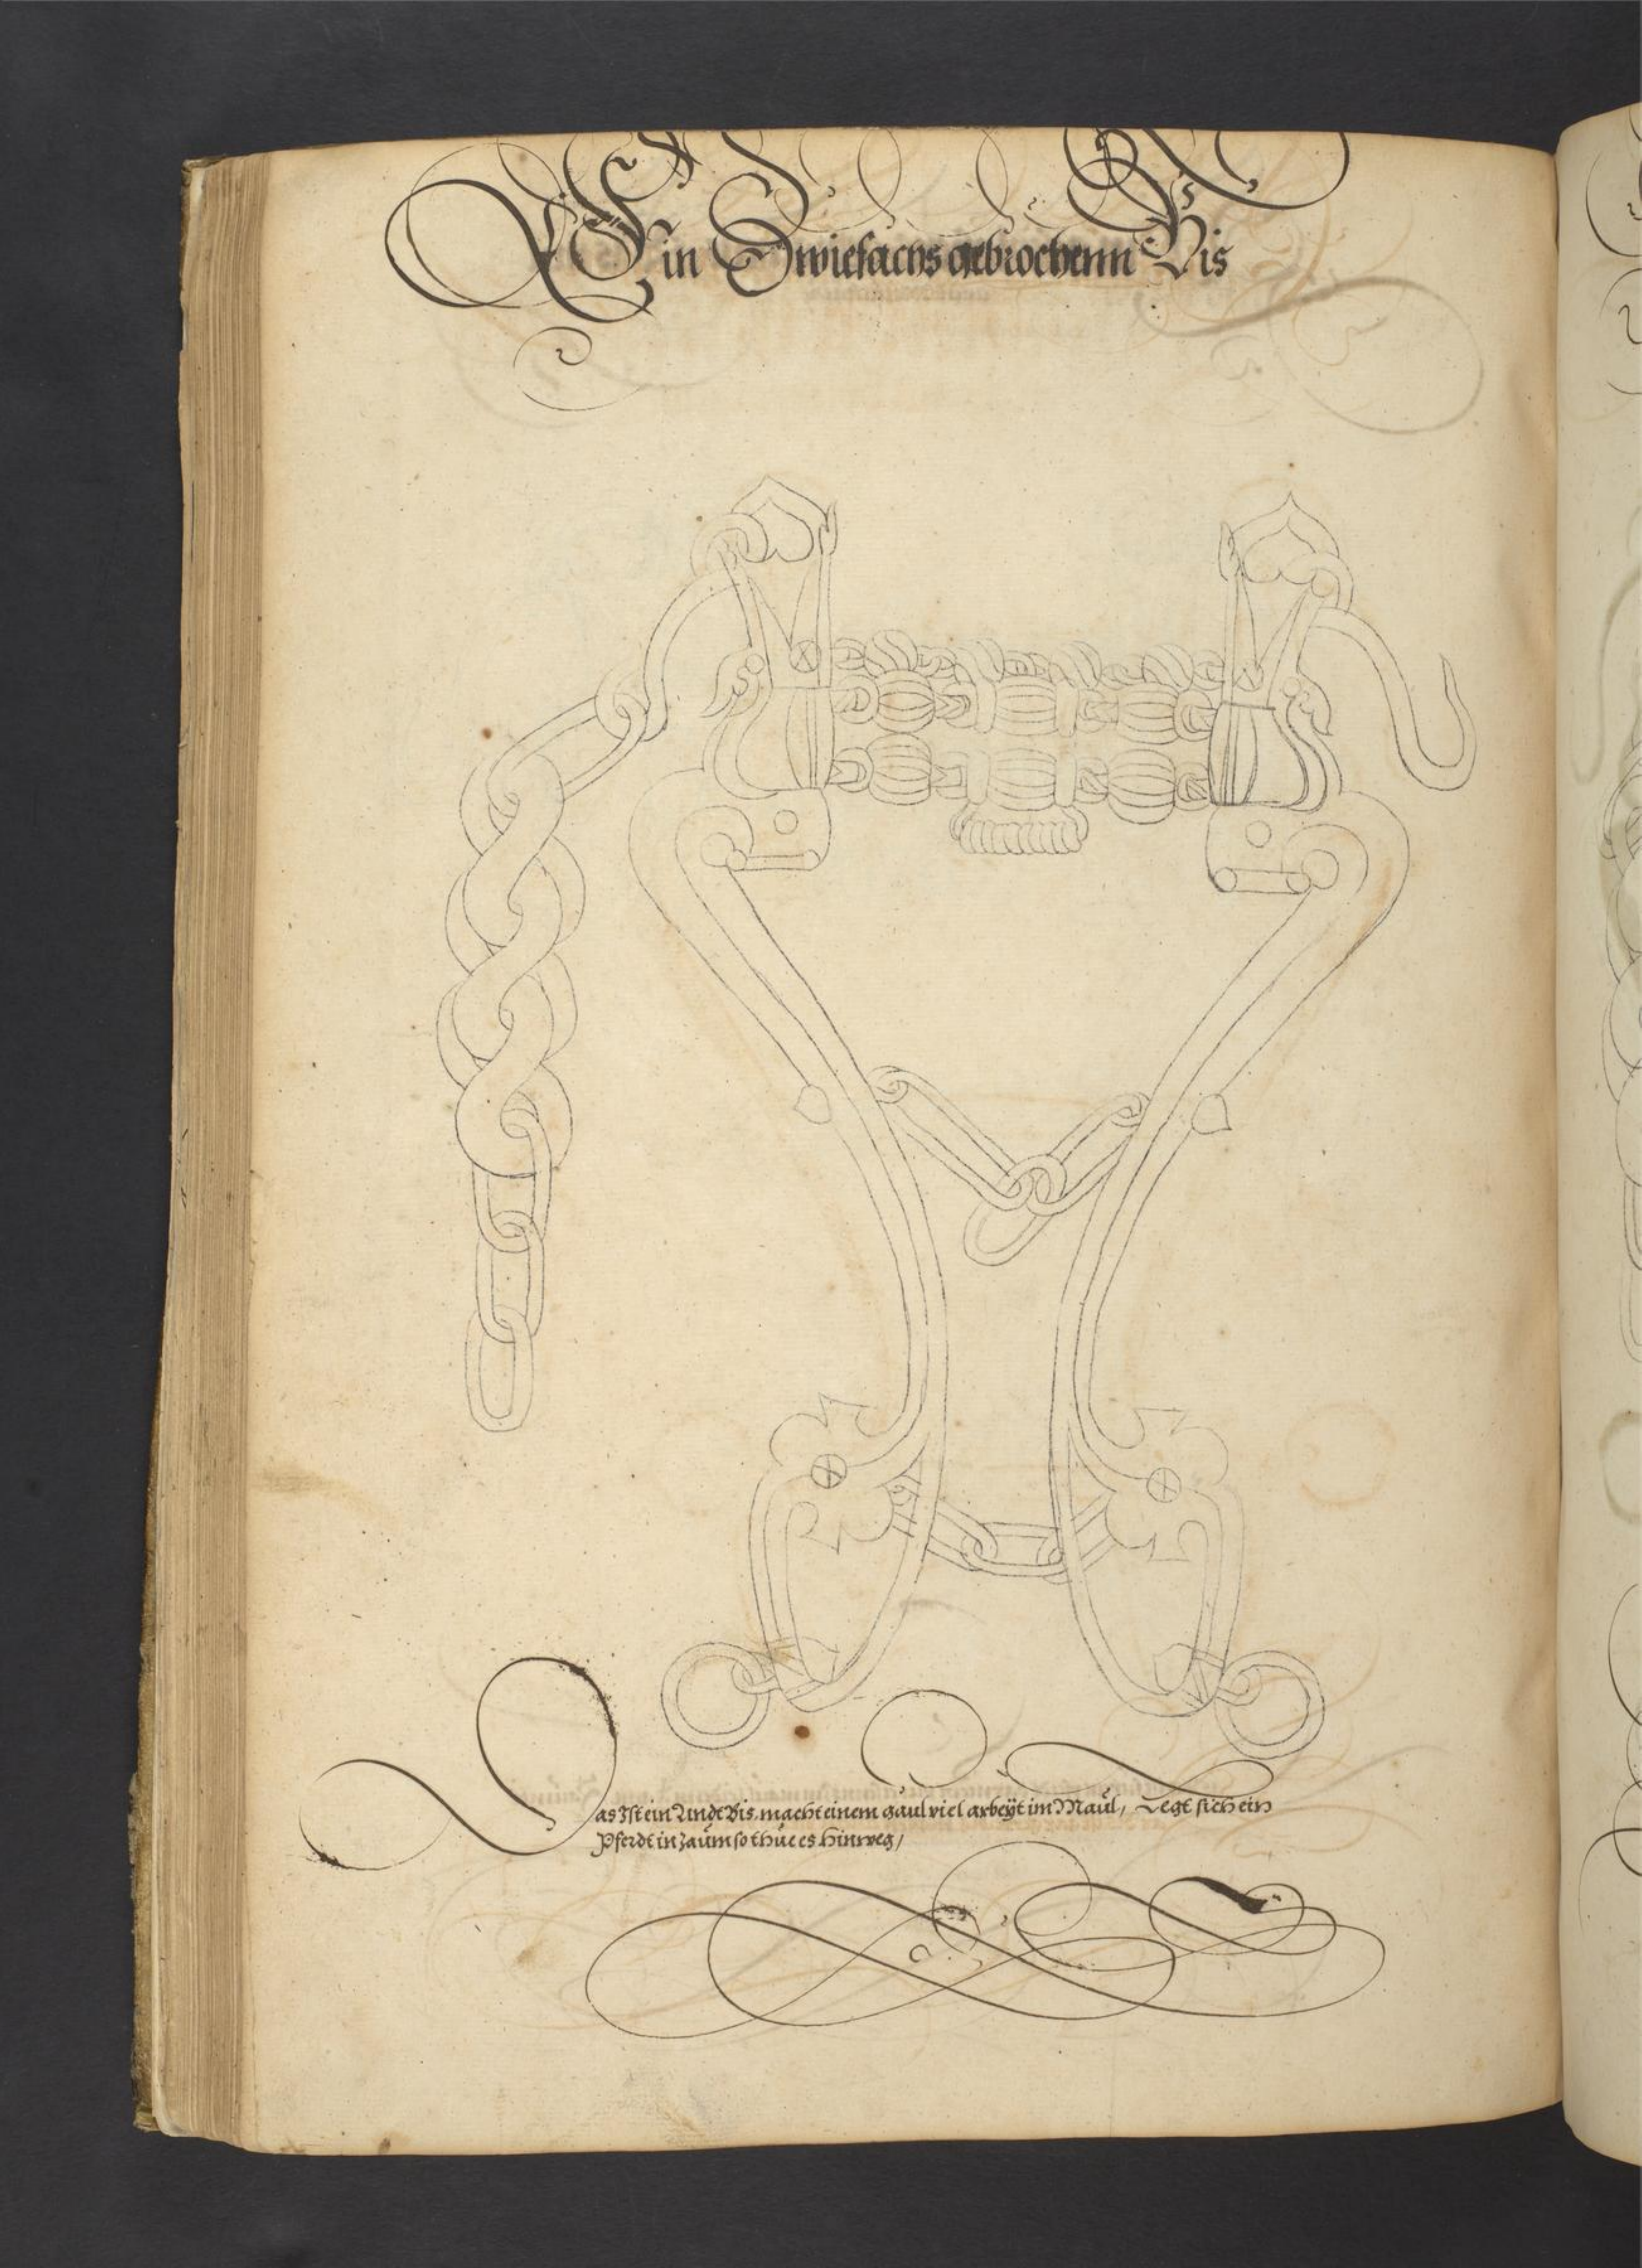 Ein Zwiefachs gebrochenn Bis
Das Ist ein Lindt Bis. macht einem gaul viel arbeÿt im Maul, Legt sich ein
Pferdt in zaum so thue es hinweg,